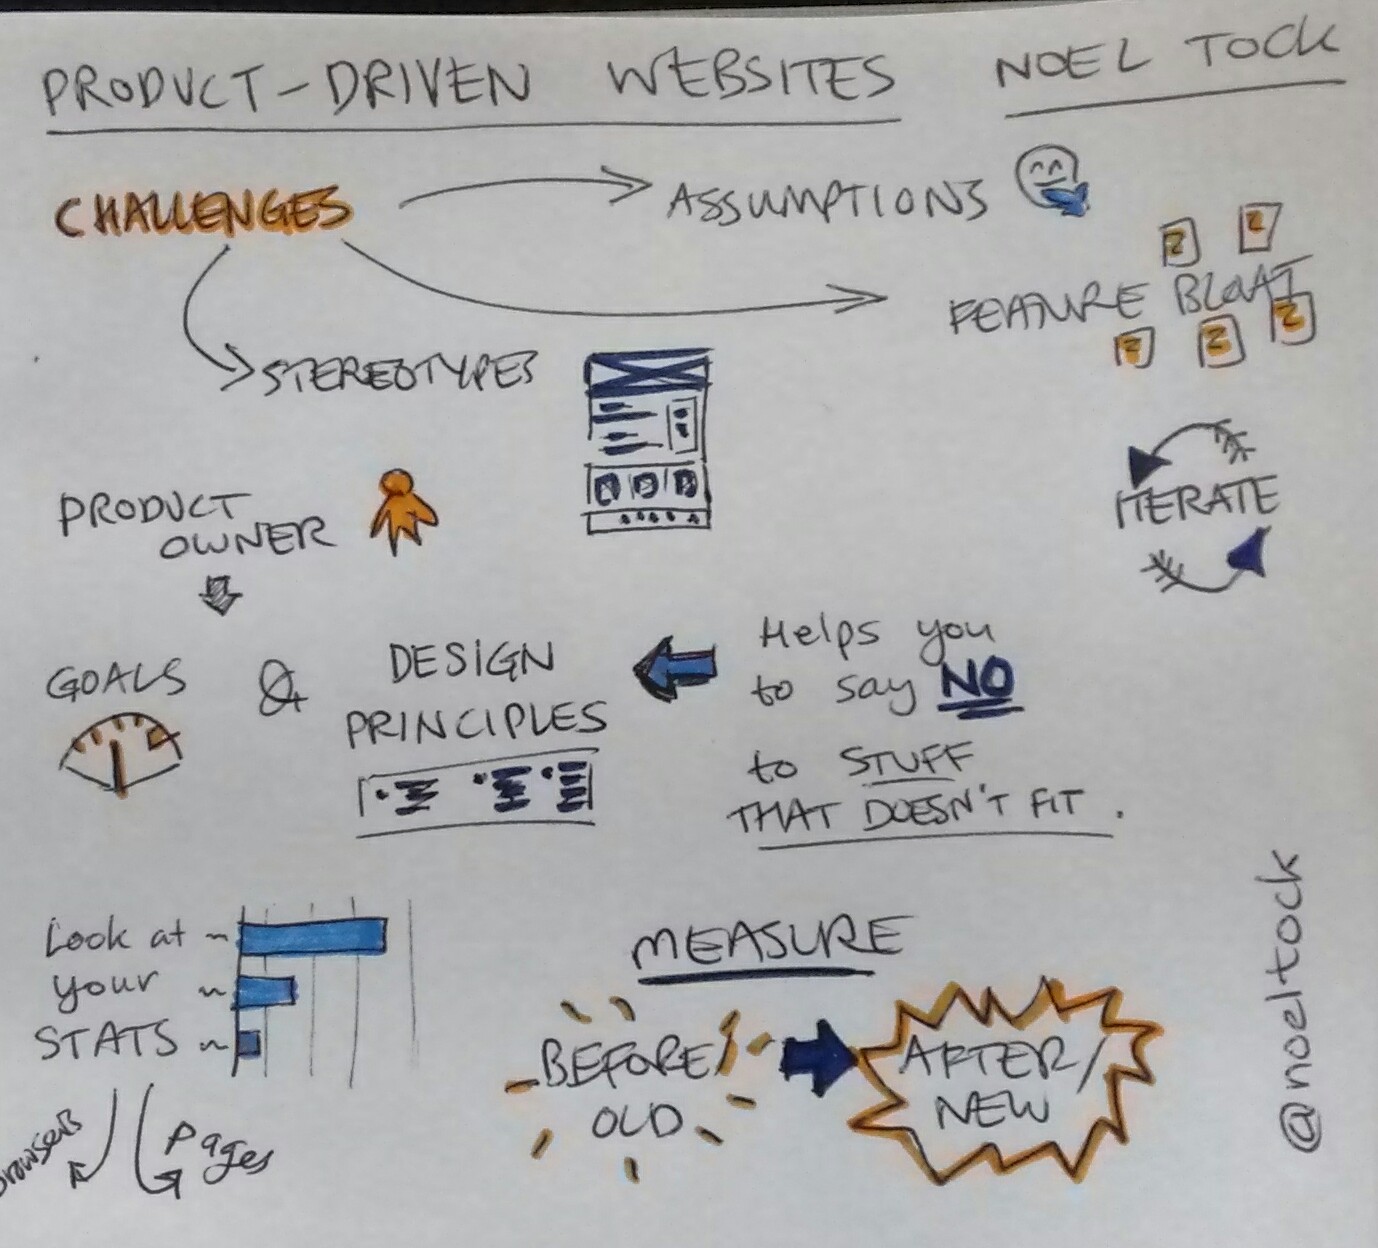 PRODUCT-DRIVEN WEBSITES
NOEL TOCK
CHALLENGES
ASSUMPTIONS
Z Z
FEATURE BLOAT
Z Z Z
STEREOTYPES
PRODUCT
OWNER
ITERATE
GOALS & DESIGN
PRINCIPLES
Helps you
to say NO
to STUFF
THAT DOESN'T FIT.
Look at
your
STATS
Browsers
Pages
MEASURE
BEFORE/
OLD
AFTER/
NEW
@noeltock